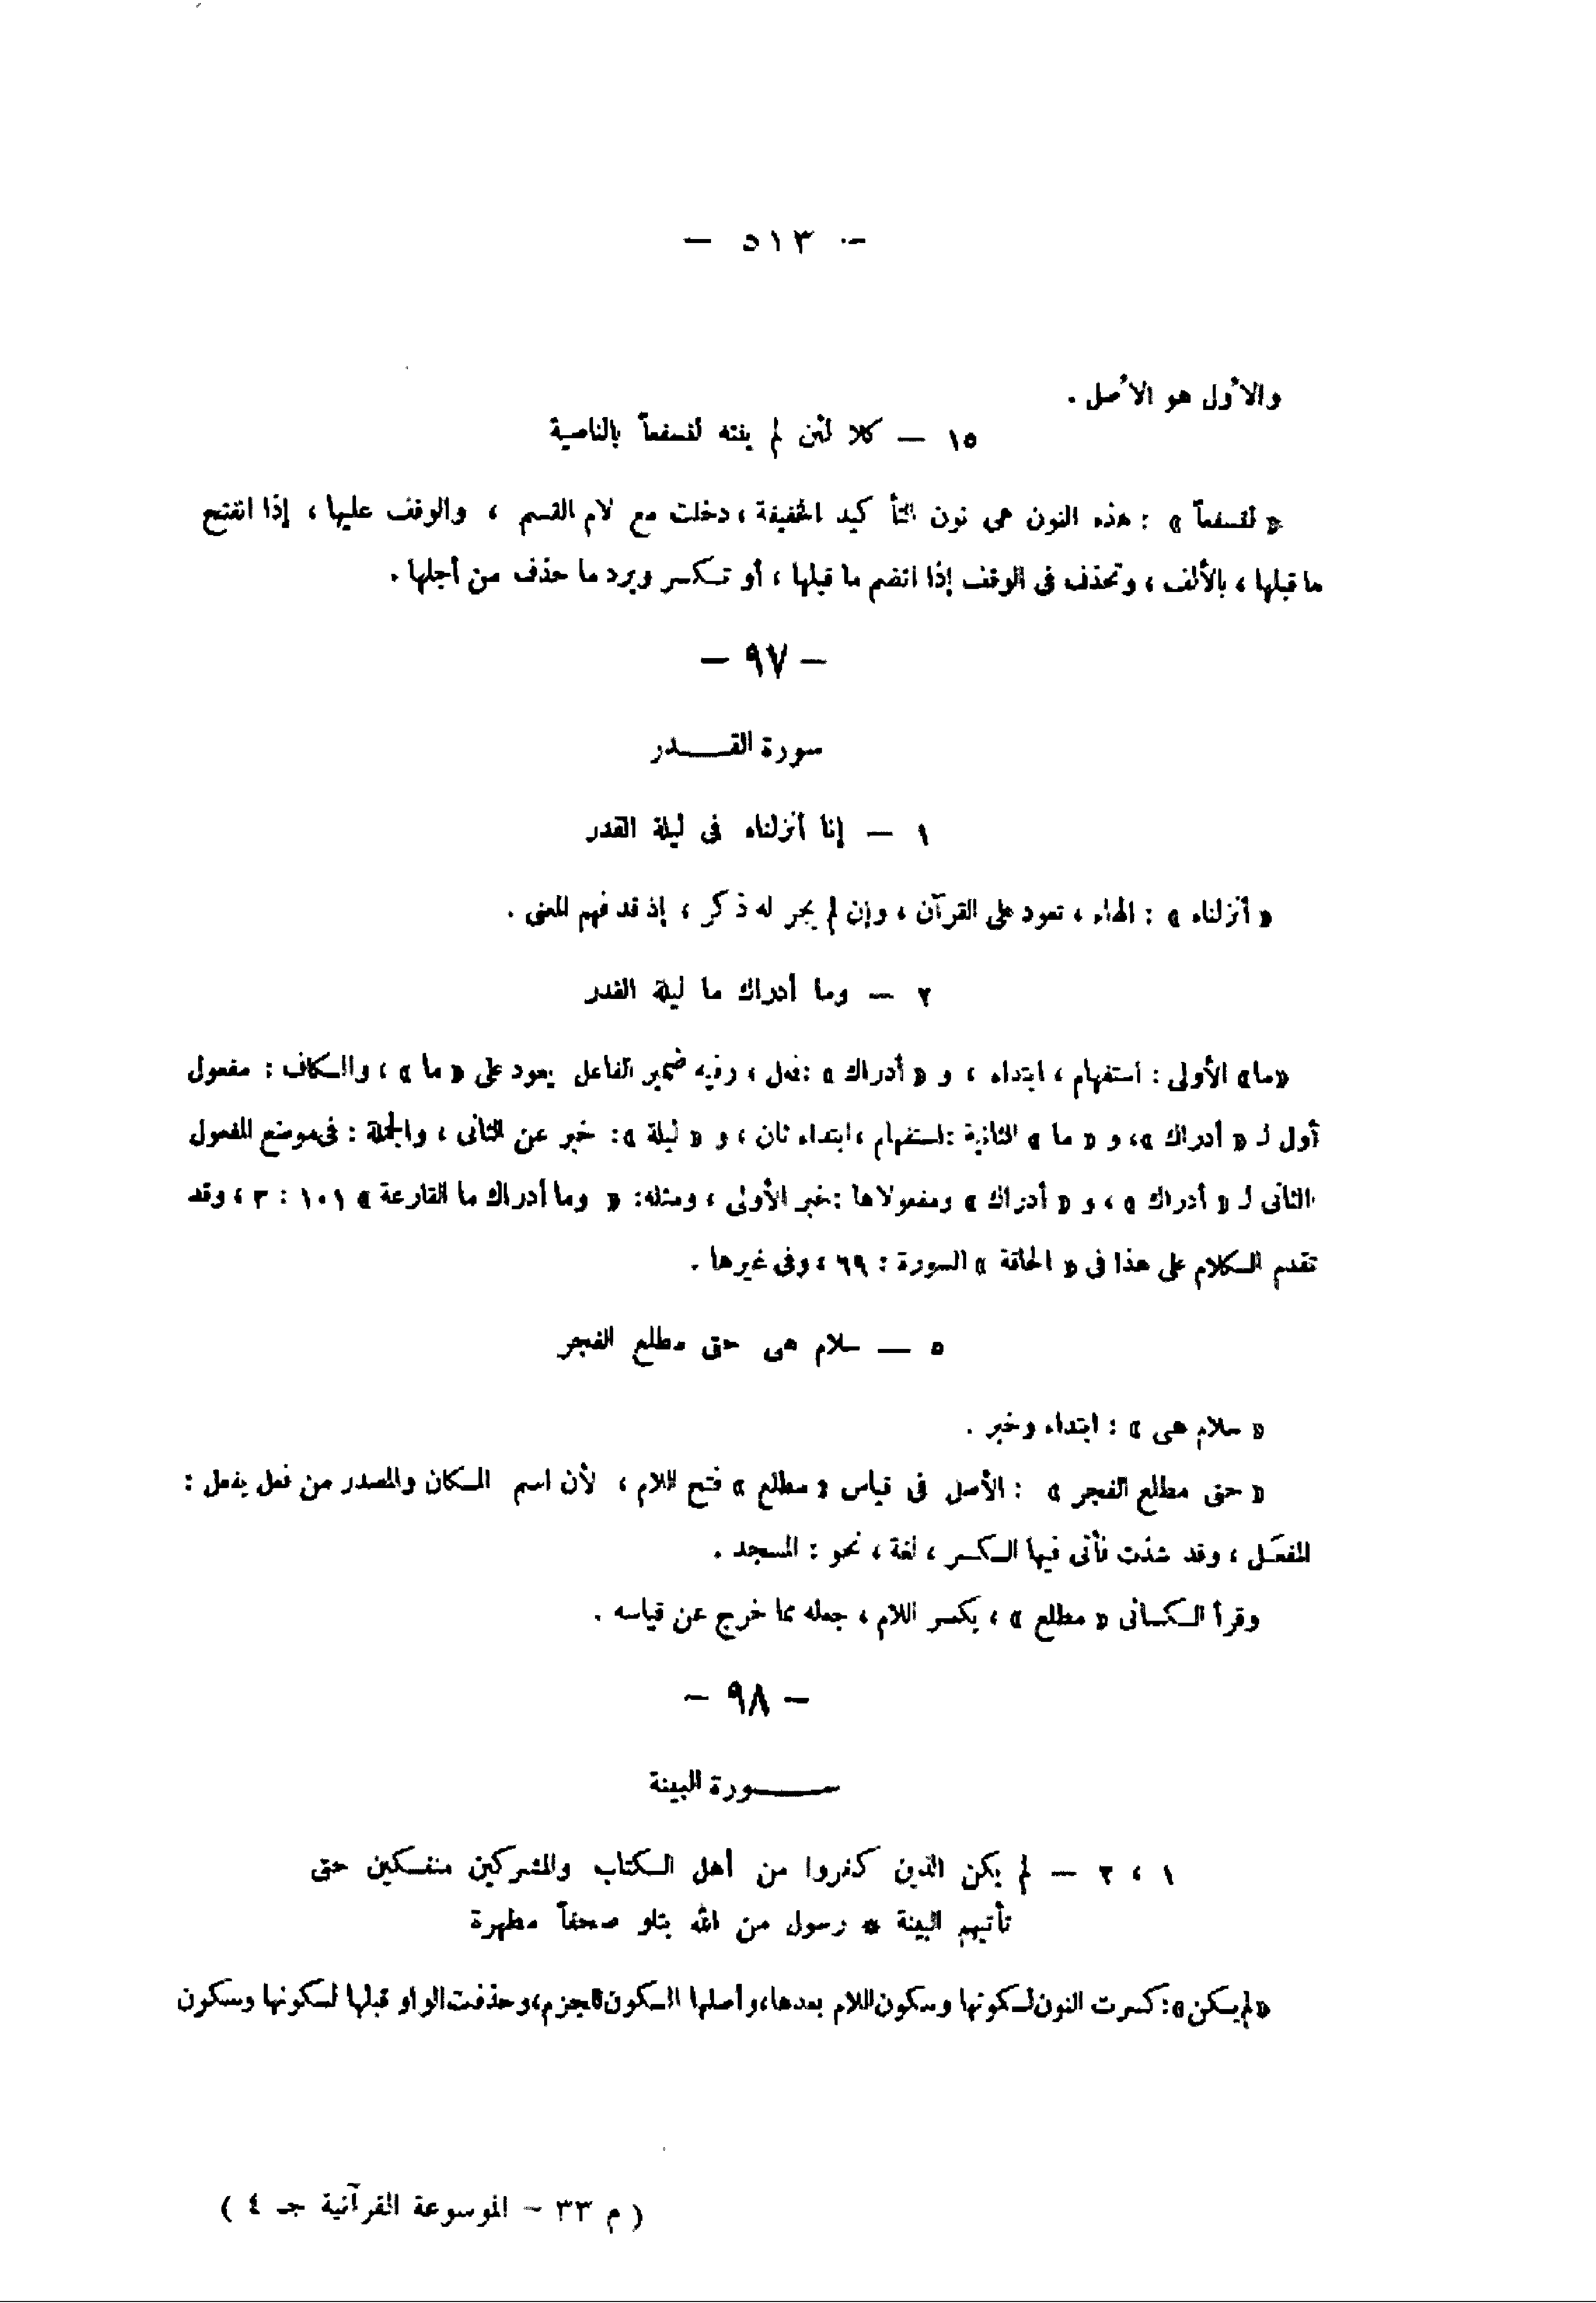 — ٥١٣ —
والأول هو الأصل .
١٥ — كلا لئن لم ينته لنسفعاً بالناصية
« لنسفعاً » : هذه النون هى نون التأكيد الخفيفة ، دخلت مع لام القسم ، والوقف عليها ، إذا انفتح
ما قبلها ، بالألف ، وتحذف فى الوقف إذا انضم ما قبلها ، أو تكسر ويرد ما حذف من أجلها .
— ٩٧ —
سورة القـــدر
١ — إنا أنزلناه فى ليلة القدر
« أنزلناه » : الهاء ، تعود على القرآن ، وإن لم يجر له ذكر ، إذ قد فهم المعنى .
٢ — وما أدراك ما ليلة القدر
«ما» الأولى : استفهام ، ابتداء ، و « أدراك » : فعل ، وفيه ضمير الفاعل يعود على « ما » ، والكاف : مفعول
أول لـ « أدراك »، و « ما » الثانية : استفهام ، ابتداء ثان ، و « ليلة » : خبر عن الثانى ، والجملة : فى موضع المفعول
الثانى لـ « أدراك » ، و « أدراك » ومفعولاها : خبر الأولى ، ومثله : « وما أدراك ما القارعة » ١٠١ : ٣ ، وقد
تقدم الكلام على هذا فى « الحاقة » السورة : ٦٩ ، وفى غيرها .
٥ — سلام هى حتى مطلع الفجر
« سلام هى » : ابتداء وخبر .
« حتى مطلع الفجر » : الأصل فى قياس « مطلع » فتح اللام ، لأن اسم المكان والمصدر من فعل يفعل :
المفعَل ، وقد شذت فأتى فيها الكسر ، لغة ، نحو : المسجد .
وقرأ الكسائى « مطلع » ، بكسر اللام ، جعله مما خرج عن قياسه .
— ٩٨ —
ســـورة البينة
١ ، ٢ — لم يكن الذين كفروا من أهل الكتاب والمشركين منفكين حتى
تأتيهم البينة * رسول من الله يتلو صحفاً مطهرة
«لم يكن» : كسرت النون لسكونها وسكون اللام بعدها، وأصلها السكون للجزم، وحذفت الواو قبلها لسكونها وسكون
( م ٣٣ — الموسوعة القرآنية جـ ٤ )